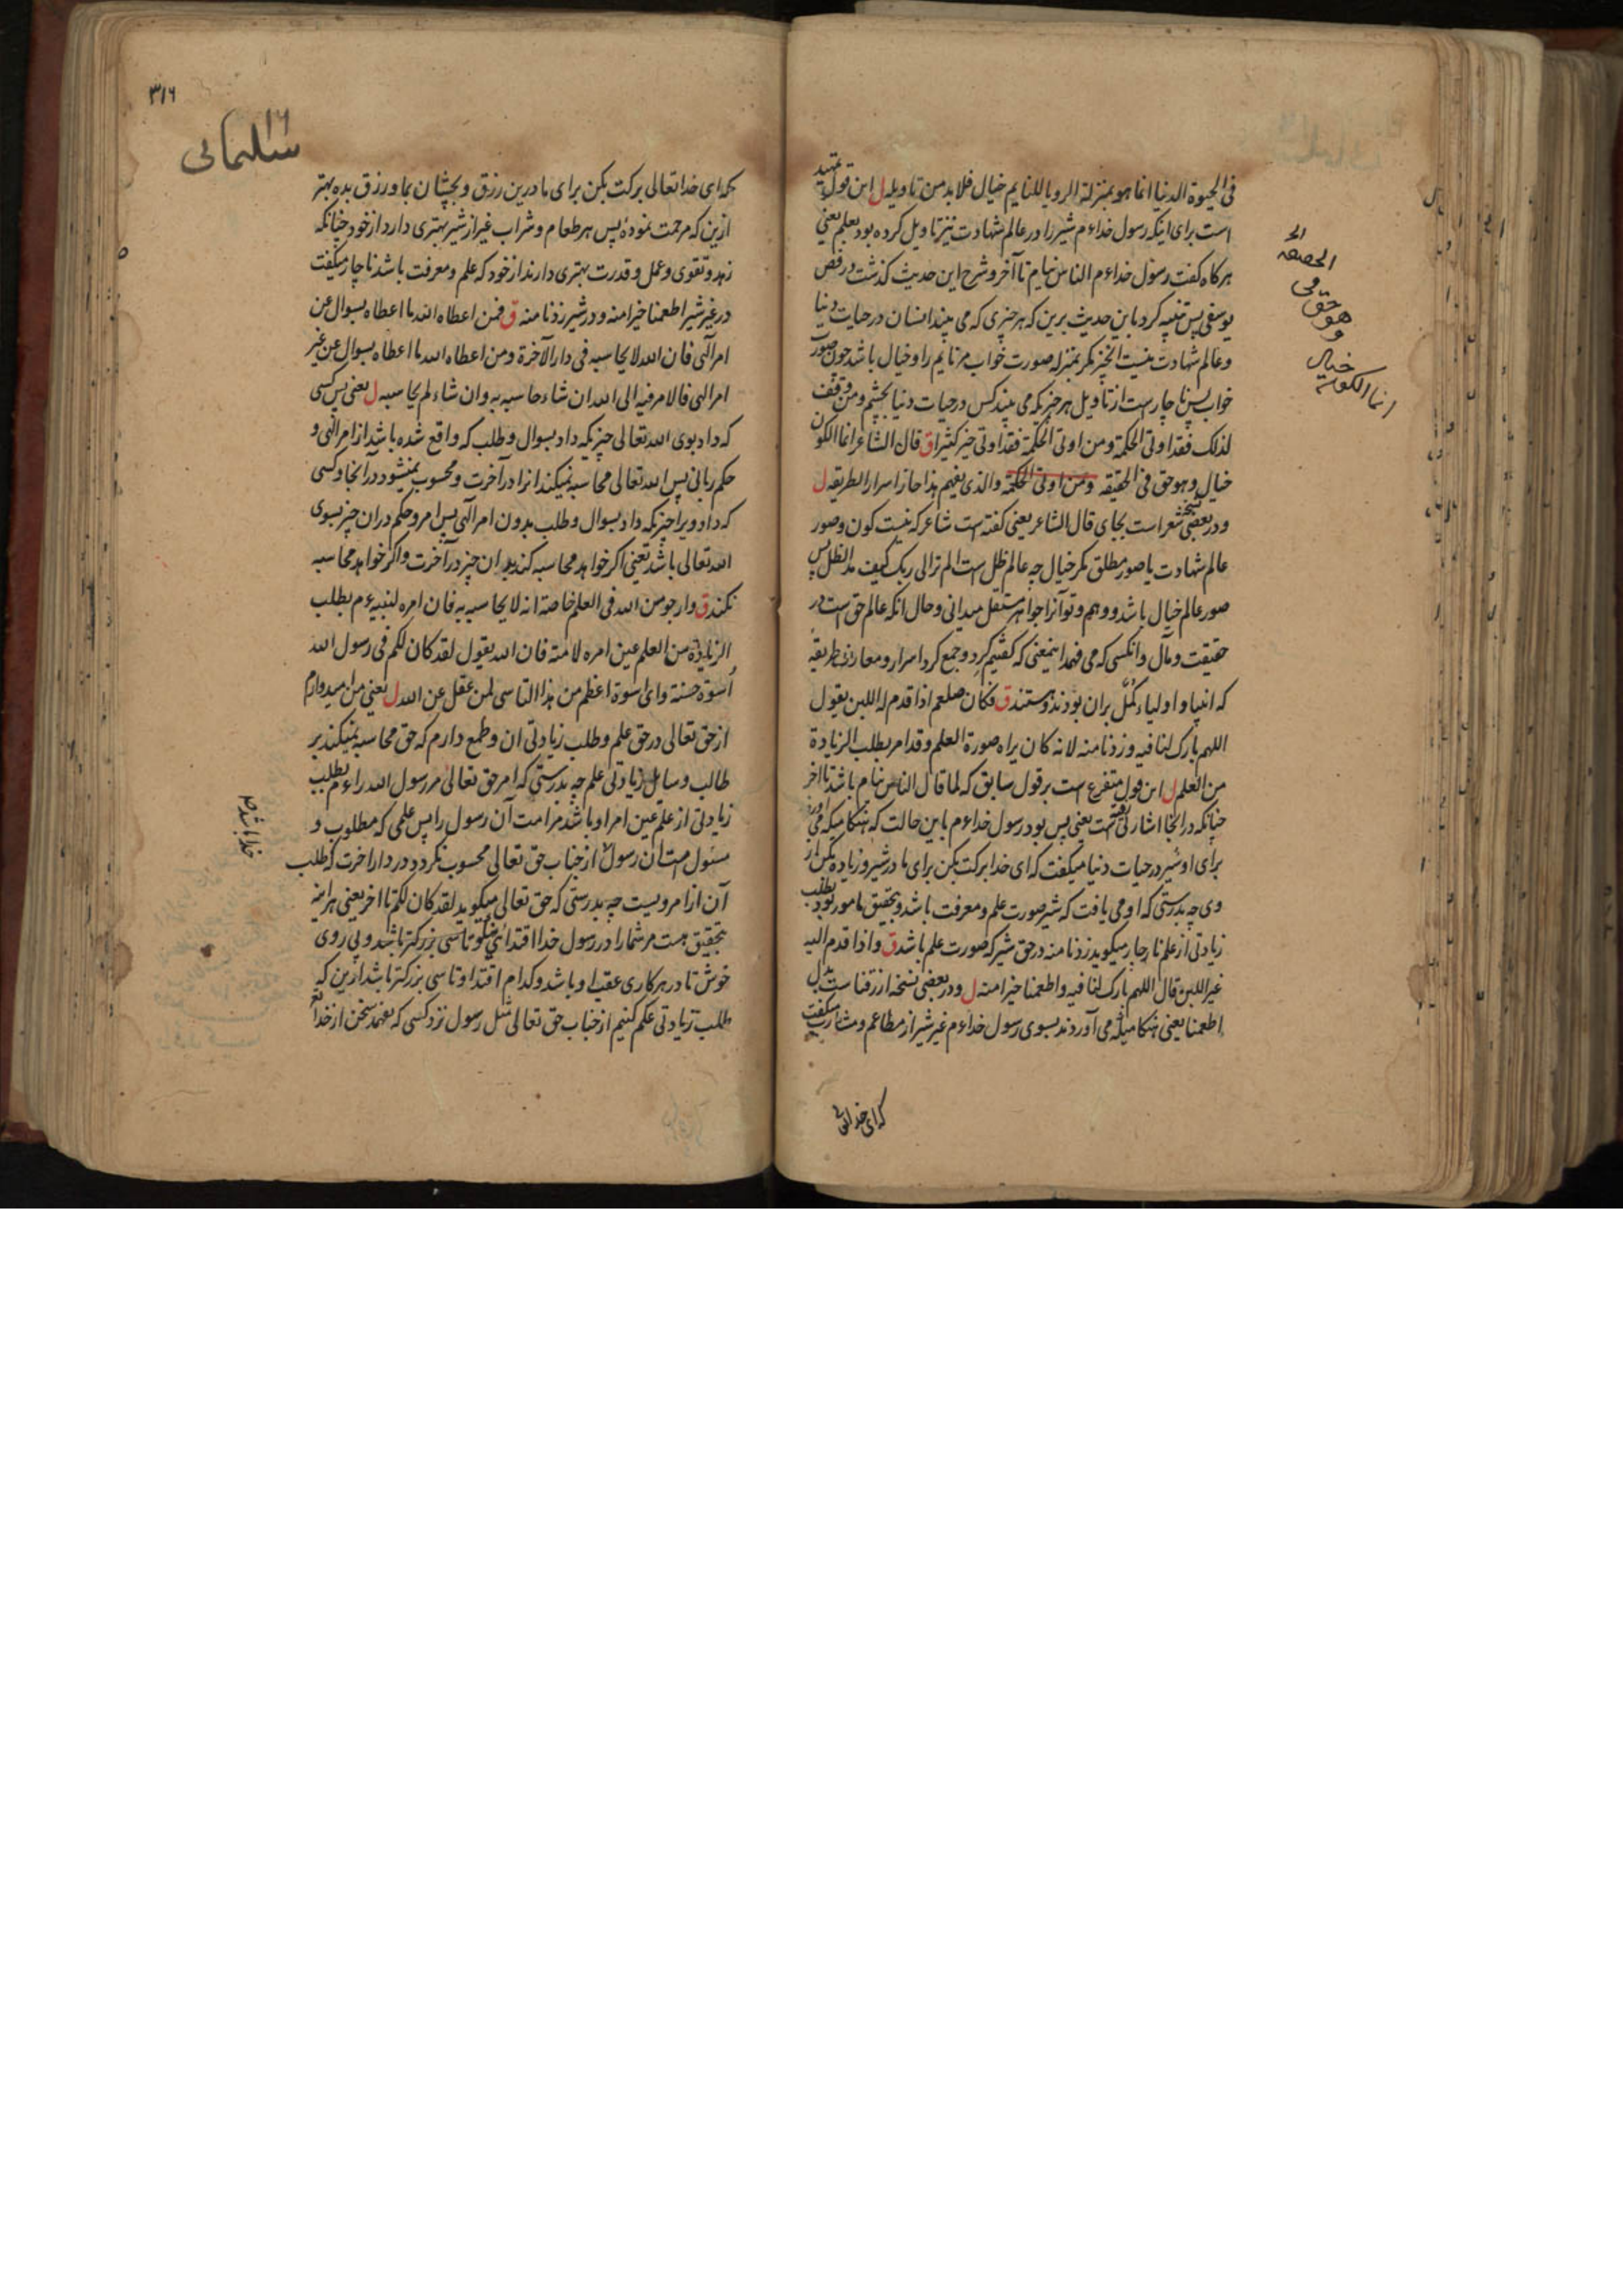 فی الحیوة الدنیا انما هو بمنزلة الرویا للنایم خیال فلا بد من تاویله ل این قول تمهید
است برای اینکه رسول خدا ءم شیر را در عالم شهادت نیز تاویل کرده بود بعلم یعنی
هرکاه کفت رسول خدا ءم الناس نیام تا آخر و شرح این حدیث کذشت در فص
یوسفی پس تنبیه کرد باین حدیث برین که هر چیزی که می بیند انسان در حیات دنیا
و عالم شهادت نیست انچیز مکر بمنزله صورت خواب مر نایم را و خیال باشد چون صور
خواب پس ناچار است از تاویل هر چیزیکه می بیند کس در حیات دنیا بچشم و من وقف
لذلک فقد اوتی الحکمة و من اوتی الحکمة فقد اوتی خیر کثیرا ق قال الشاعر انما الکون
خیال وهو حق فی الحقیقه ومن اوتی الحکمة والذی یفهم هذا حاز اسرار الطریقه ل
و در بعضی نسخه شعر است بجای قال الشاعر یعنی کفته است شاعر که نیست کون و صور
عالم شهادت یا صور مطلق مکر خیال چه عالم ظل است الم تر الی ربک کیف مد الظل پس
صور عالم خیال باشد و وهم و تو آنرا جواهر مستقل میدانی و حال انکه عالم حق است در
حقیقت و مآل و انکسی که می فهمد اینمعنی که کفتیم کرد و جمع کرد اسرار و معارف طریقه
که انبیا و اولیاء کُمّل بران بودند و هستند ق فکان صلعم اذا قدم له اللبن یقول
اللهم بارک لنا فیه و زدنا منه لانه کان یراه صورة العلم و قد امر بطلب الزیادة
من العلم ل این قول متفرع است بر قول سابق که لما قال الناس نیام باشد تا آخر
چنانکه در انجا اشارت رفته است یعنی پس بود رسول خدا ءم باین حالت که هنکامیکه می آورند
برای او شیر در حیات دنیا میکفت که ای خدا برکت بکن برای ما در شیر و زیاده بکن از
وی چه بدرستی که او می یافت که شیر صورت علم و معرفت باشد و بتحقیق مامور بود بطلب
زیادتی از علم ناچار میکوید زدنا منه در حق شیر که صورت علم باشد ق و اذا قدم الیه
غیر اللبن قال اللهم بارک لنا فیه و اطعمنا خیرا منه ل و در بعضی نسخه ارزقنا ست بدل
اطعمنا یعنی هنکامیکه می آوردند بسوی رسول خدا ءم غیر شیر از مطاعم و مشارب میکفت
که ای خدا تعالی
انما الکون
خیال
و
هو
حق فی
الحقیقه
الخ
۳۱۶
۱۶
سلیمانی
که ای خدا تعالی برکت بکن برای ما درین رزق و بچشان بما و رزق بده بهتر
ازین که مرحمت نمودهٔ پس هر طعام و شراب غیر از شیر بهتری دارد از خود چنانکه
زهد و تقوی و عمل و قدرت بهتری دارند از خود که علم و معرفت باشد ناچار میکفت
در غیر شیر اطعمنا خیرا منه و در شیر زدنا منه ق فمن اعطاه الله ما اعطاه بسوال عن
امر الهی فان الله لا یحاسبه فی دار الآخرة و من اعطاه الله ما اعطاه بسوال عن غیر
امر الهی فالامر فیه الی الله ان شاء حاسبه به و ان شاء لم یحاسبه ل یعنی پس کسی
که داد بوی الله تعالی چیزیکه داد بسوال و طلب که واقع شده باشد از امر الهی و
حکم ربانی پس الله تعالی محاسبه نمیکند انرا در آخرت و محسوب نمیشود در آنجا و کسی
که داد ویرا چیزیکه داد بسوال و طلب بدون امر الهی پس امر و حکم در ان چیز بسوی
الله تعالی باشد یعنی اکر خواهد محاسبه کند بر ان چیز در آخرت و اکر خواهد محاسبه
نکند ق و ارجو من الله فی العلم خاصة انه لا یحاسبه به فان امره لنبیه ءم بطلب
الزیادة من العلم عین امره لامته فان الله یقول لقد کان لکم فی رسول الله
اُسوة حسنة و ای اسوة اعظم من هذا التاسی لمن عقل عن الله ل یعنی من امیدوارم
از حق تعالی در حق علم و طلب زیادتی ان و طمع دارم که حق محاسبه نمیکند بر
طالب و سایل زیادتی علم چه بدرستی که امر حق تعالی مر رسول الله را ءم بطلب
زیادتی از علم عین امر او باشد مر امت آن رسول را پس علمی که مطلوب و
مسئول امت ان رسول از جناب حق تعالی محسوب نکردد در دار اخرت که طلب
آن از امر ویست چه بدرستی که حق تعالی میکوید لقد کان لکم تا اخر یعنی هر اینه
بتحقیق هست مر شما را در رسول خدا اقتدای نیکو تاسی بزرکتر باشد و پی روی
خوش تا در هر کاری عقب او باشد و کدام اقتدا و تاسی بزرکتر باشد ازین که
طلب زیادتی علم کنیم از جناب حق تعالی مثل رسول نزد کسی که بفهمد سخن از خدا
خدا باشد